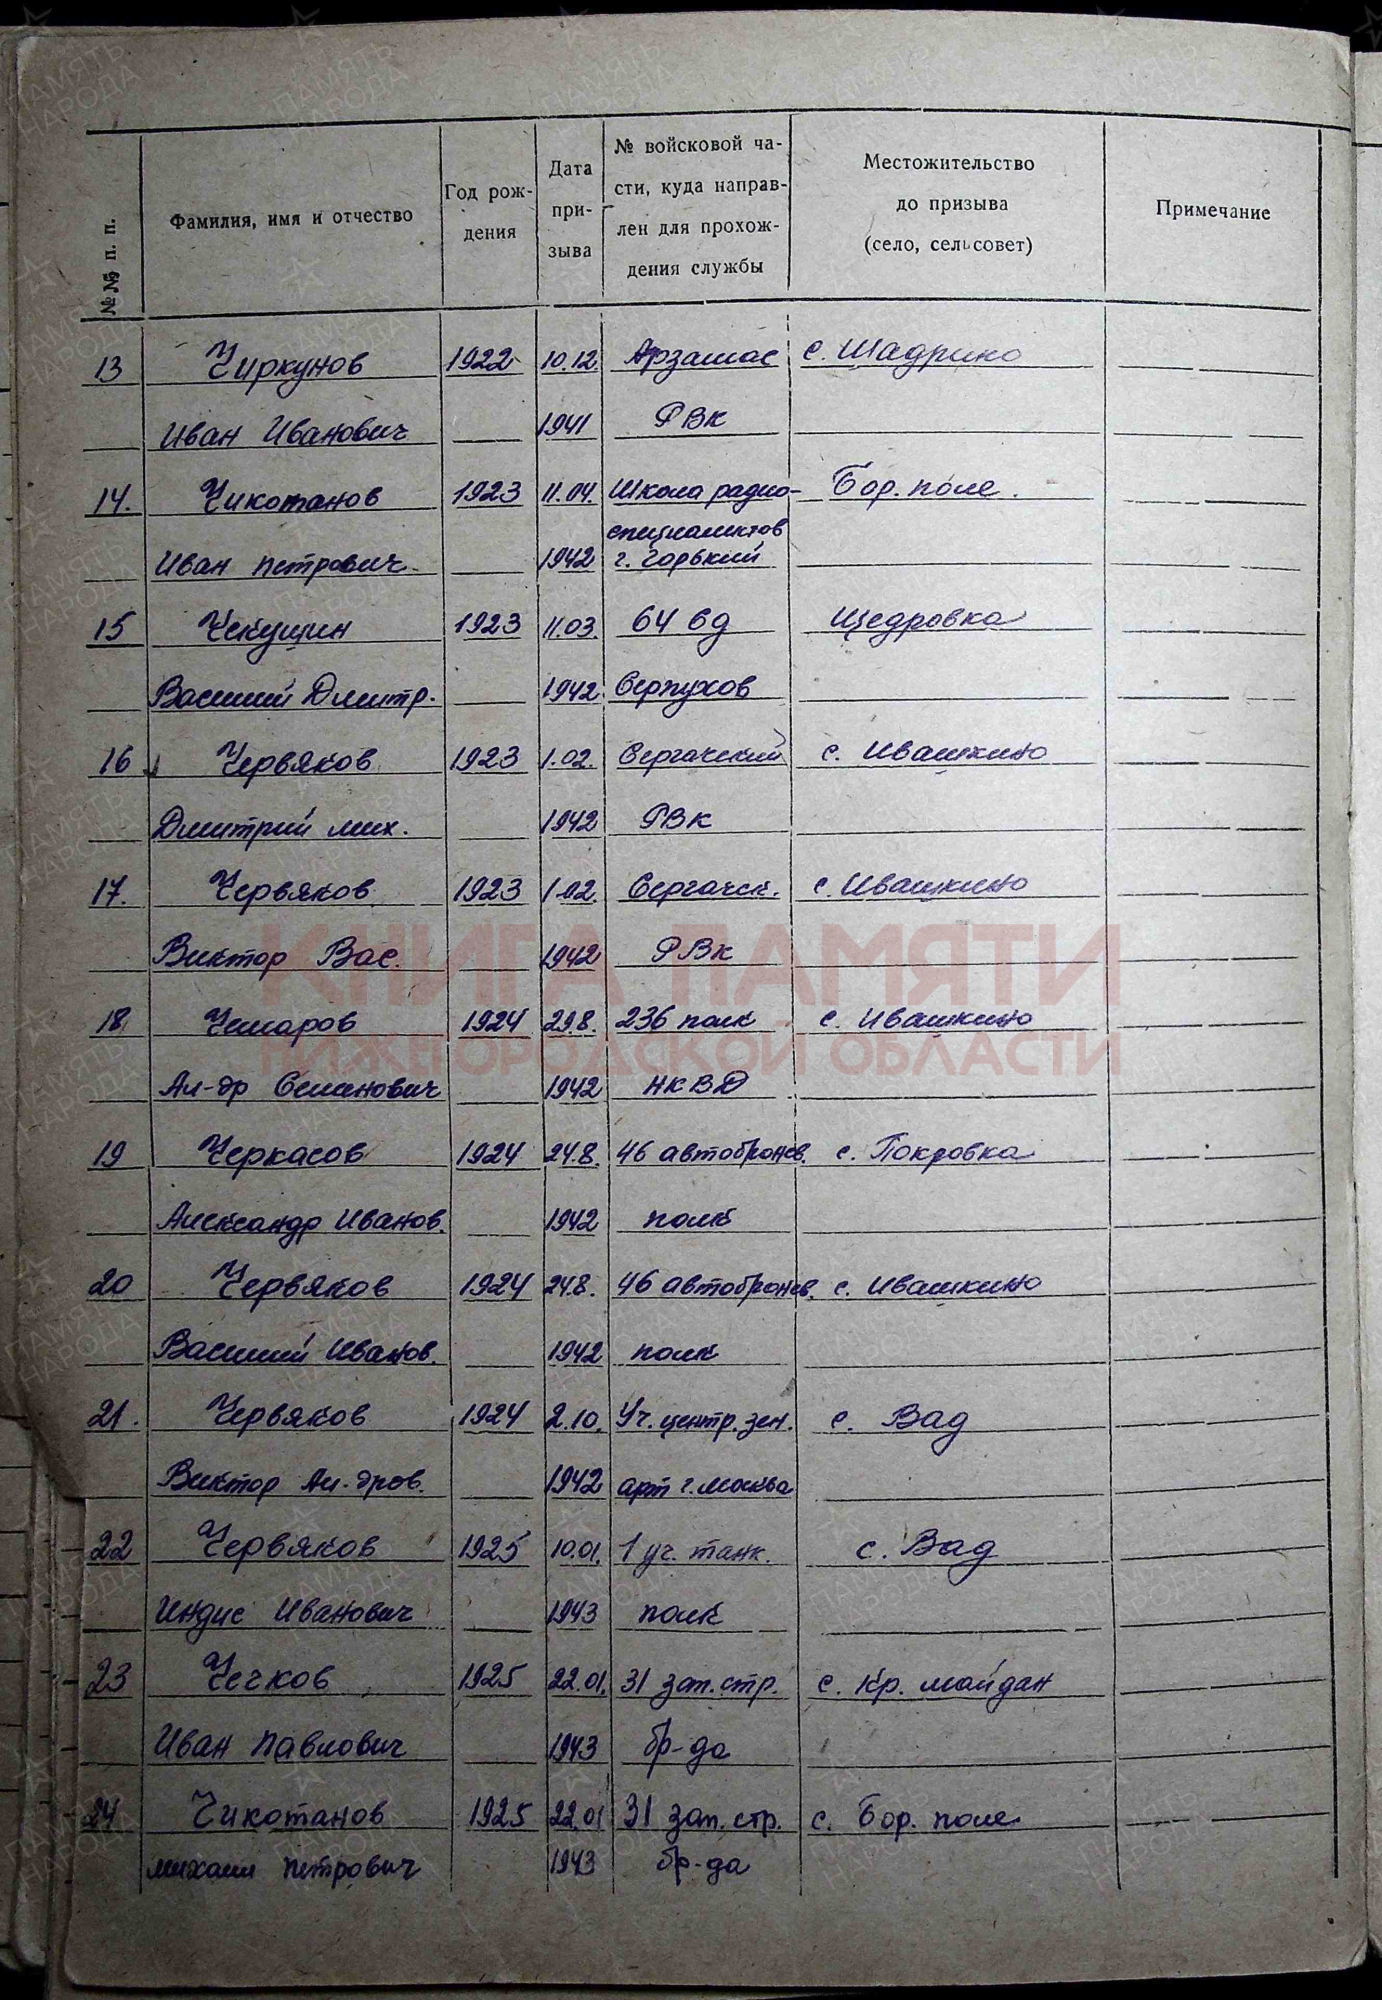 №№ п. п.
Фамилия, имя и отчество
Год рож-
дения
Дата
при-
зыва
№ войсковой ча-
сти, куда направ-
лен для прохож-
дения службы
Местожительство
до призыва
(село, сельсовет)
Примечание
13 Чиркунов 1922 10.12. Арзамас с. Шадрино
Иван Иванович 1941 РВК
14. Чикотанов 1923 11.04. Школа радио- Бор. поле.
специалистов
Иван Петрович 1942 г. Горький
15 Чекушин 1923 11.03. 64 бд Щедровка
Василий Дмитр. 1942 Серпухов
16 Червяков 1923 1.02. Сергачский с. Ивашкино
Дмитрий Мих. 1942 РВК
17. Червяков 1923 1.02. Сергачск. с. Ивашкино
Виктор Вас. 1942 РВК
КНИГА ПАМЯТИ
18 Чемаров 1924 29.8. 236 полк с. Ивашкино
НИЖЕГОРОДСКОЙ ОБЛАСТИ
Ал-др Семенович 1942 НКВД
19 Черкасов 1924 24.8. 46 автобронев. с. Покровка
Александр Иванов. 1942 полк
20 Червяков 1924 24.8. 46 автобронев. с. Ивашкино
Василий Иванов. 1942 полк
21. Червяков 1924 2.10. Уч. центр. зен. с. Вад
Виктор Ал-дров. 1942 арт г. Москва
22 Червяков 1925 10.01. 1 уч. танк. с. Вад
Индис Иванович 1943 полк
23 Чечков 1925 22.01. 31 зап. стр. с. Кр. Майдан
Иван Павлович 1943 бр-да
24 Чикотанов 1925 22.01 31 зап. стр. с. Бор. поле
Михаил Петрович 1943 бр-да